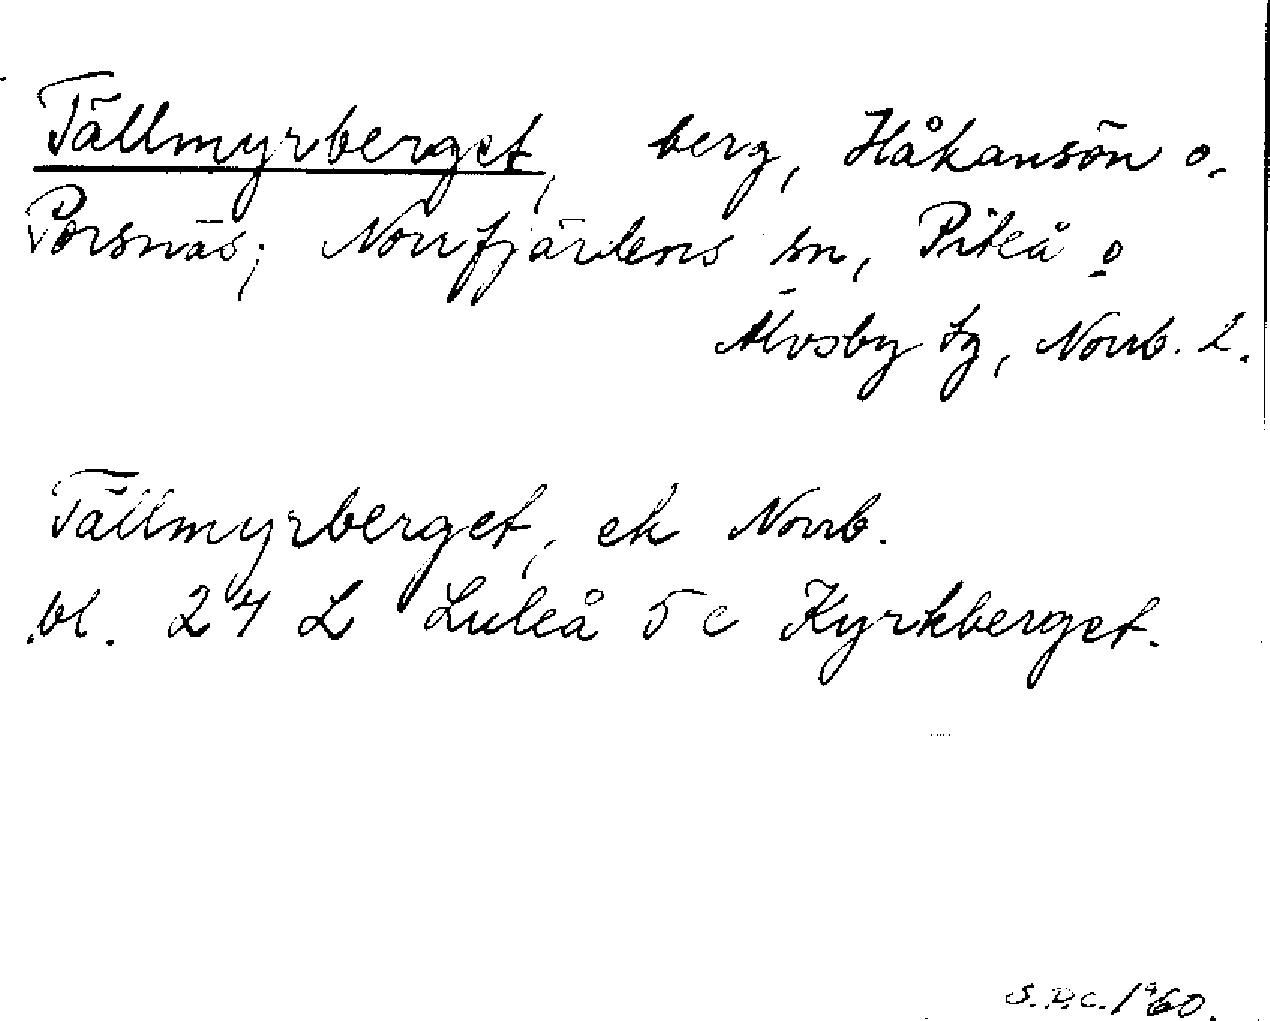 Tällmyrberget, berg, Håkansön o.
Porsnäs; Norrfjärdens sn, Piteå o
Älvsby tg, Norrb. L.
Tällmyrberget, ek Norrb.
bl. 24 L Luleå 5 c Kyrkberget.
1960.